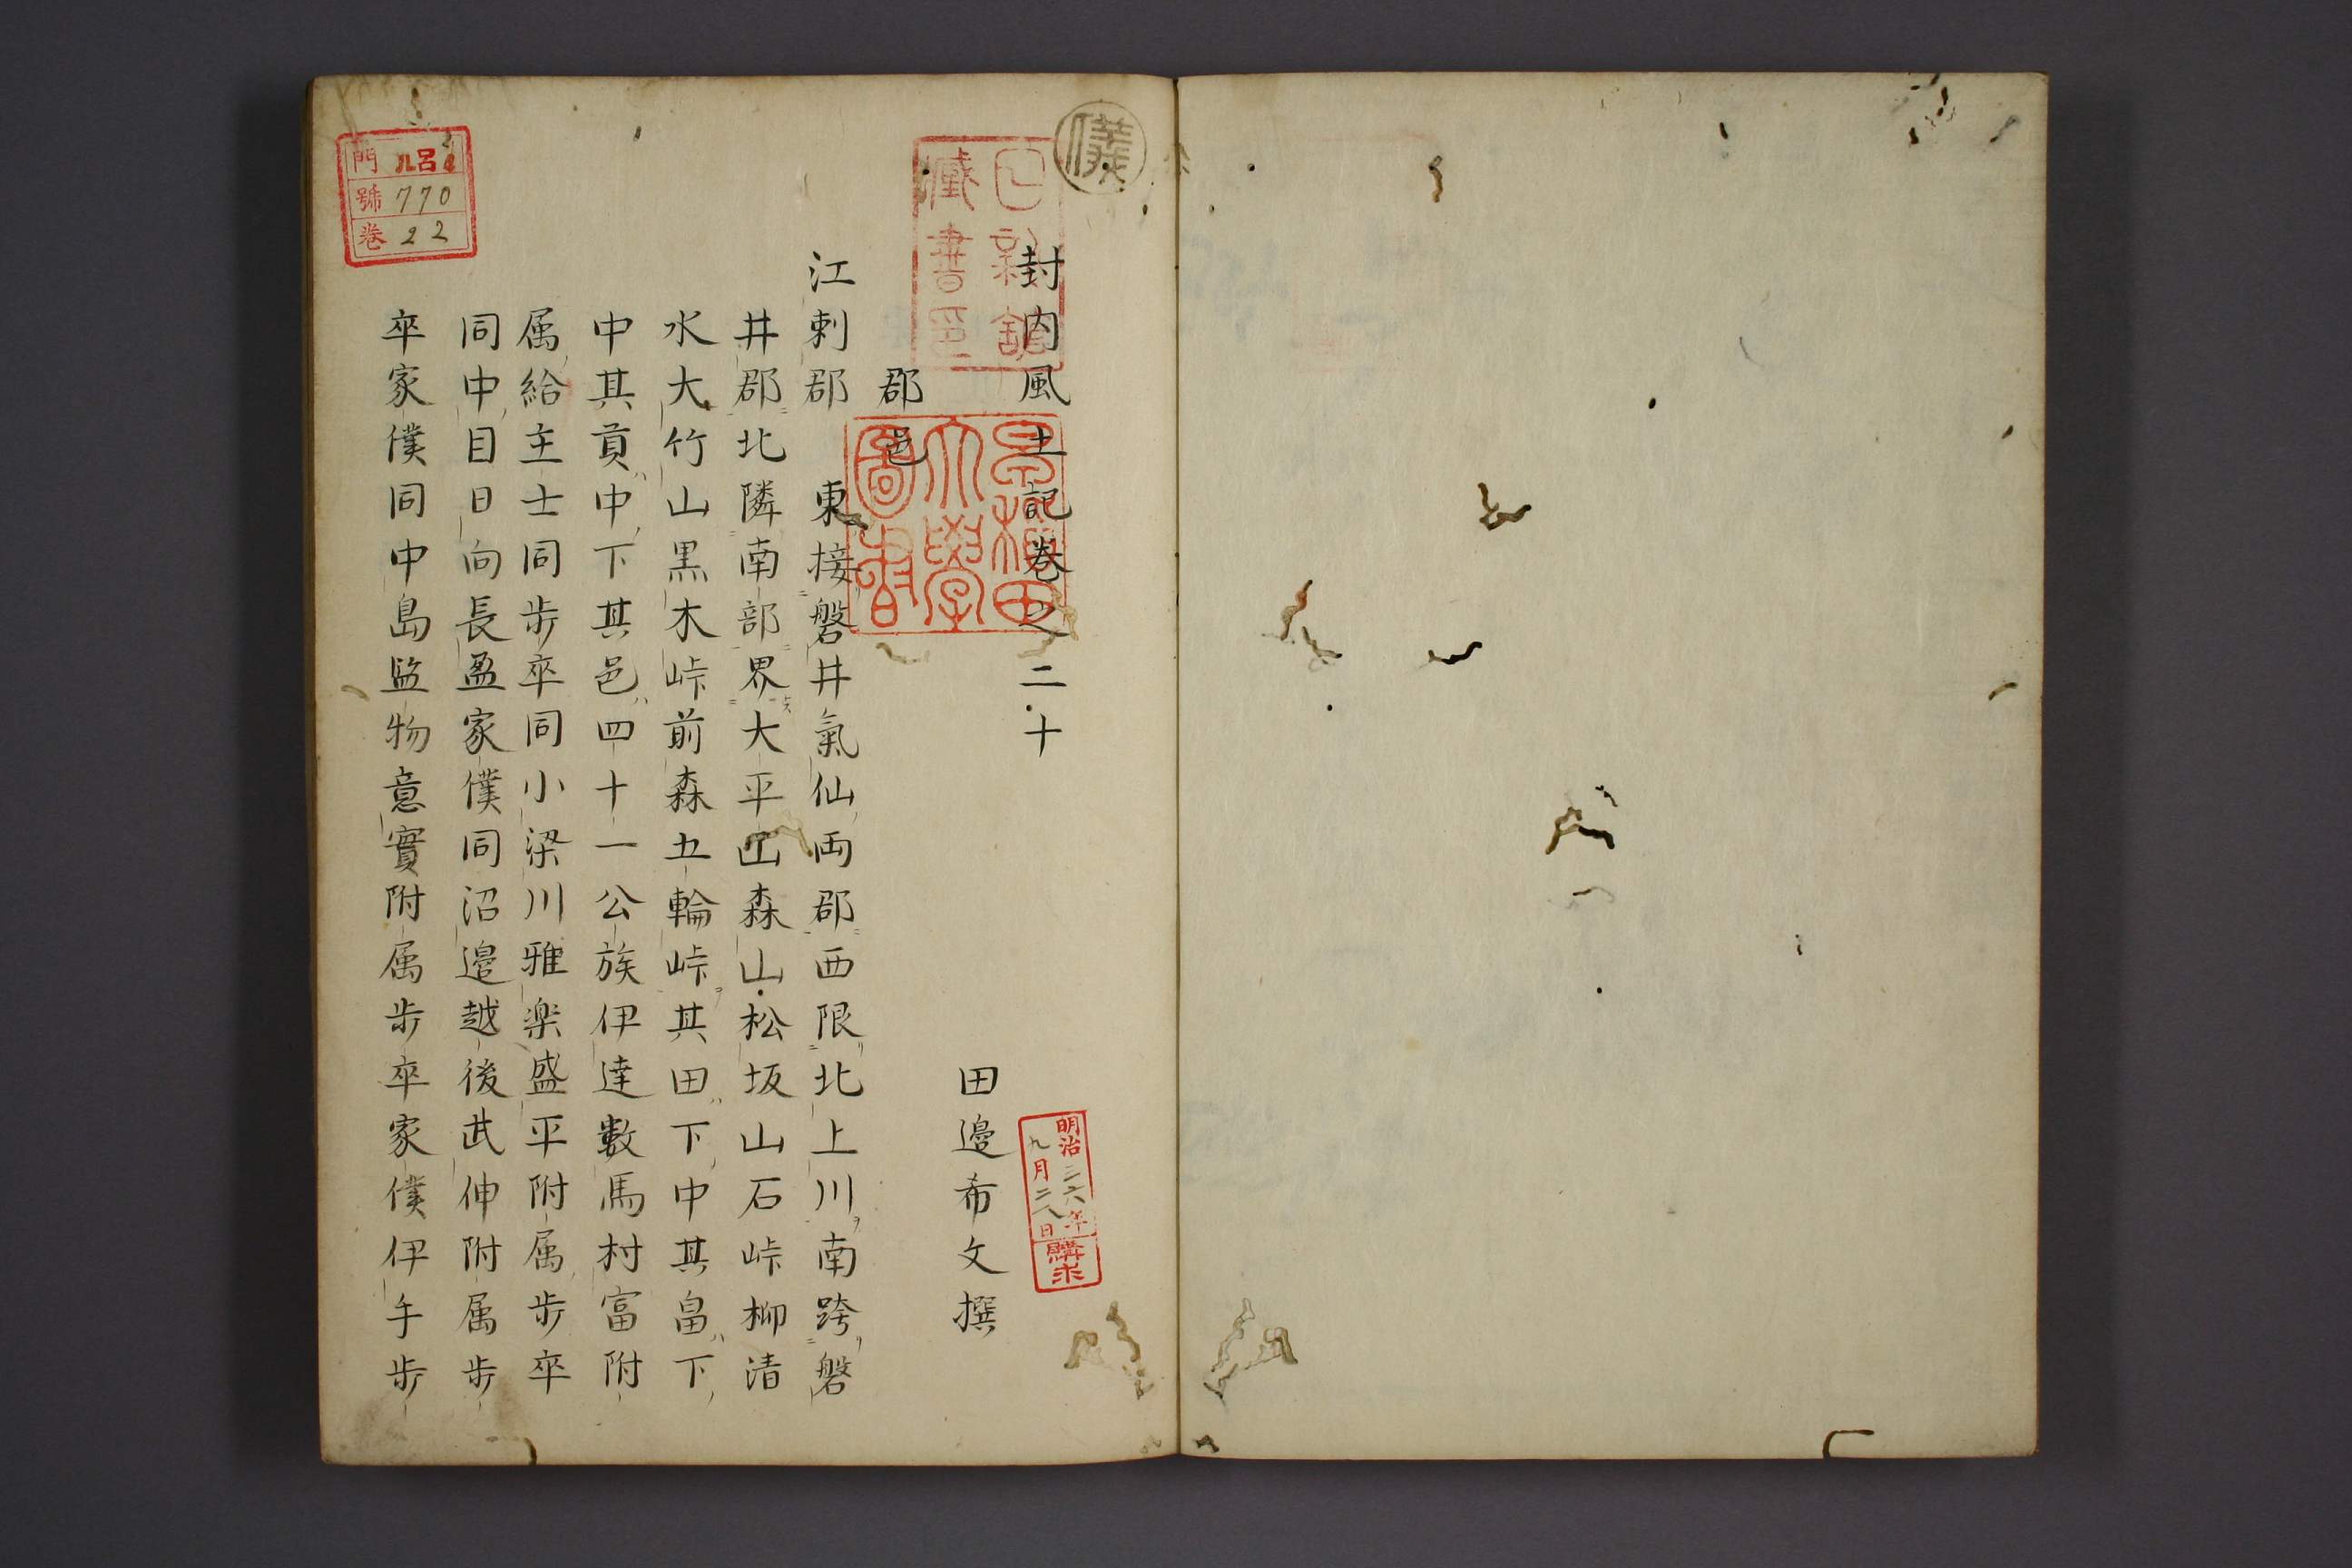 封内風土記巻之二十
田邉希文撰
郡邑
江刺郡 東接磐井氣仙両郡西限北上川南跨磐
井郡北隣南部界大平𡶶森山松坂山石峠柳清
水大竹山黒木峠前森五輪峠其田下中其畠下
中其貢中下其邑四十一公族伊達數馬村富附
属給主士同歩卒同小梁川雅楽盛平附属歩卒
同中目日向長盈家僕同沼邉越後武伸附属歩
卒家僕同中島監物意實附属歩卒家僕伊手歩
儀
藏書印
早稲田大學圖書
明治三六年
九月二八日
購求
門 ル呂4
號 770
巻 22